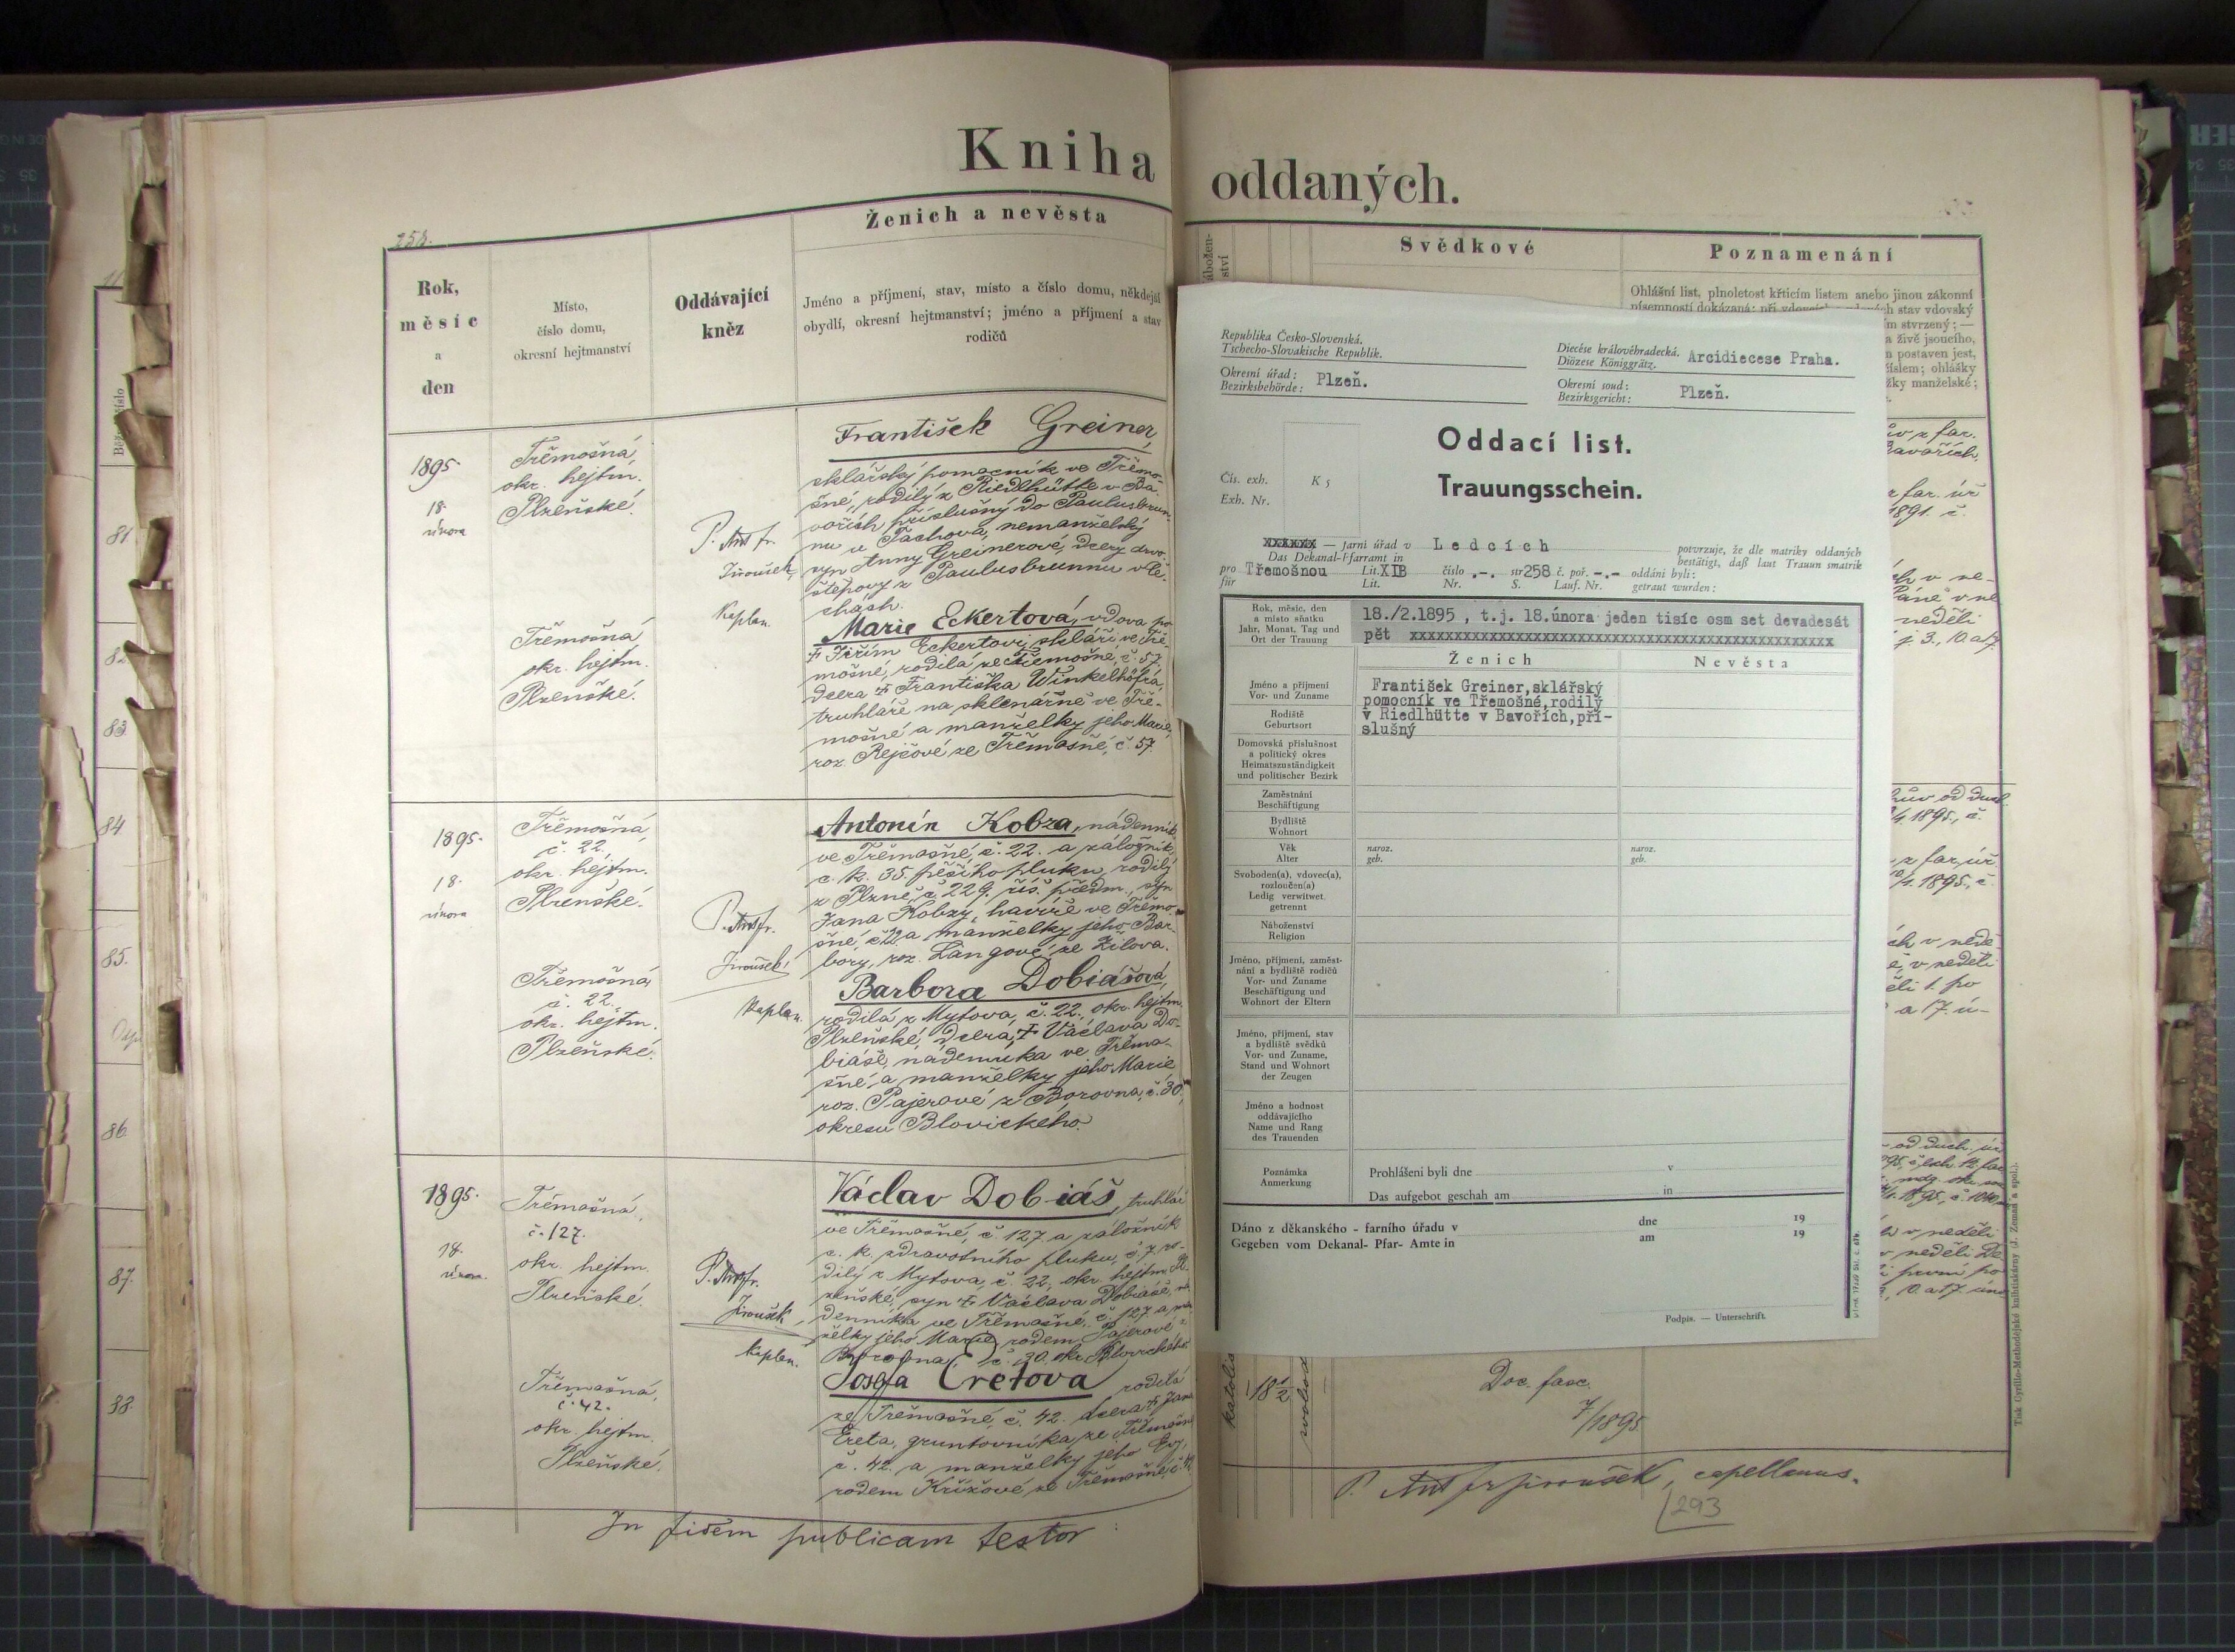 Kniha
258.
Ženich a nevěsta
Rok,
měsíc
a
den
Místo,
číslo domu,
okresní hejtmanství
Oddávající
kněz
Jméno a příjmení, stav, místo a číslo domu, někdejší
obydlí, okresní hejtmanství; jméno a příjmení a stav
rodičů
1895.
18.
února
Třemošná,
okr. hejtm.
Plzeňské.
P. Ant. fr.
Jiroušek,
Kaplan.
František Greiner,
sklářský pomocník ve Třemo-
šné, rodilý z Riedlhütte v Ba-
vořích příslušný do Paulusbrun-
nu u Tachova, nemanželský
syn Anny Greinerové, dcery drvo-
štěpovy z Paulusbrunnu v Če-
chách.
Třemošná
okr. hejtm.
Plzeňské.
Marie Eckertová, vdova po
† Jiřím Eckertovi, skláři ve Tře-
mošné, rodilá ze Třemošné, č. 57,
dcera † Františka Winkelhöfra,
truhláře na sklenárně ve Tře-
mošné a manželky jeho Marie,
roz. Rejčové ze Třemošné, č. 57.
1895.
18.
února
Třemošná,
č. 22.
okr. hejtm.
Plzeňské.
P. Ant. fr.
Jiroušek,
Kaplan.
Antonín Kobza, nádenník
ve Třemošné, č. 22. a záložník
c. k. 35. pěšího pluku, rodilý
z Plzně, č. 229. říš. předm., syn
Jana Kobzy, havíře ve Třemo-
šné, č. 22 a manželky jeho Bar-
bory, roz. Langové ze Žilova.
Třemošná
č. 22.
okr. hejtm.
Plzeňské.
Barbora Dobiášová,
rodilá z Mytova, č. 22., okr. hejtm.
Plzeňské, dcera † Václava Do-
biáše, nádenníka ve Třemo-
šné, a manželky jeho Marie
roz. Pajerové z Borovna, č. 30.,
okresu Blovického.
1895.
18.
února.
Třemošná,
č. 127.
okr. hejtm.
Plzeňské.
P. Ant. fr.
Jiroušek,
kaplan.
Václav Dobiáš, truhlář
ve Třemošné, č. 127 a záložník
c. k. zdravotního pluku, č. 7, ro-
dilý z Mytova, č. 22., okr. hejtm. Pl-
zeňské, syn † Václava Dobiáše, ná-
denníka ve Třemošné, č. 127 a man-
želky jeho Marie, rodem Pajerové z
Borovna, č. 30. okr. Blovického.
Třemošná,
č. 42.
okr. hejtm.
Plzeňské.
Josefa Eretova rodilá
ze Třemošné, č. 42. dcera † Jana
Ereta, gruntovníka ze Třemošné
č. 42. a manželky jeho Evy,
rodem Křížové ze Třemošné, č. 42.
In fidem publicam testor
81.
82.
83.
84
85.
86.
87.
88.
oddaných.
Svědkové
Poznamenání
Ohlášní list, plnoletost křticím listem anebo jinou zákonní
Republika Česko-Slovenská.
Tschecho-Slovakische Republik.
Diecése královéhradecká.
Diözese Königgrätz.
Arcidiecese Praha.
Okresní úřad:
Bezirksbehörde:
Plzeň.
Okresní soud:
Bezirksgericht:
Plzeň.
Oddací list.
Trauungsschein.
Čís. exh.
Exh. Nr.
K 5
XXXXXX — farní úřad v Ledcích
Das Dekanal-Pfarramt in
potvrzuje, že dle matriky oddaných
bestätigt, daß laut Trauungsmatrik
pro Třemošnou Lit. XIB číslo .-. str 258 č. poř. -.- oddáni byli:
für Lit. Nr. S. Lauf. Nr. getraut wurden:
Rok, měsíc, den
a místo sňatku
Jahr, Monat, Tag und
Ort der Trauung
18./2.1895 , t.j. 18.února jeden tisíc osm set devadesát
pět xxxxxxxxxxxxxxxxxxxxxxxxxxxxxxxxxxxxxxxxxxxxxxxx
Ženich
Nevěsta
Jméno a příjmení
Vor- und Zuname
Rodiště
Geburtsort
František Greiner,sklářský
pomocník ve Třemošné,rodilý
v Riedlhütte v Bavořích,pří-
slušný
Domovská příslušnost
a politický okres
Heimatszuständigkeit
und politischer Bezirk
Zaměstnání
Beschäftigung
Bydliště
Wohnort
Věk
Alter
naroz.
geb.
naroz.
geb.
Svoboden(a), vdovec(a),
rozloučen(a)
Ledig verwitwet
getrennt
Náboženství
Religion
Jméno, příjmení, zaměst-
nání a bydliště rodičů
Vor- und Zuname
Beschäftigung und
Wohnort der Eltern
Jméno, příjmení, stav
a bydliště svědků
Vor- und Zuname,
Stand und Wohnort
der Zeugen
Jméno a hodnost
oddávajícího
Name und Rang
des Trauenden
Poznámka
Anmerkung
Prohlášeni byli dne v
Das aufgebot geschah am in
Dáno z děkanského - farního úřadu v dne 19
Gegeben vom Dekanal- Pfar- Amte in am 19
Podpis. — Unterschrift.
katolic
18½
svobod
Doc. fasc.
7/1895.
P. Ant fr Jiroušek, capellanus.
293
Tisk Cyrillo-Methodějské knihtiskárny (J. Zeman a spol.).